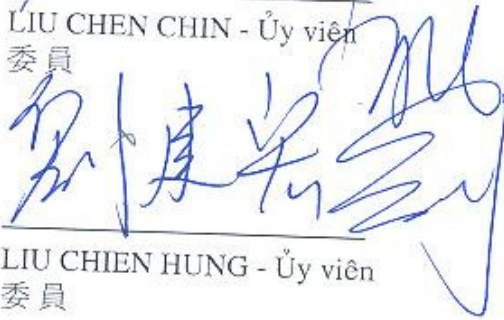 LIU CHEN CHIN - Ủy viên
委員
LIU CHIEN HUNG - Ủy viên
委員